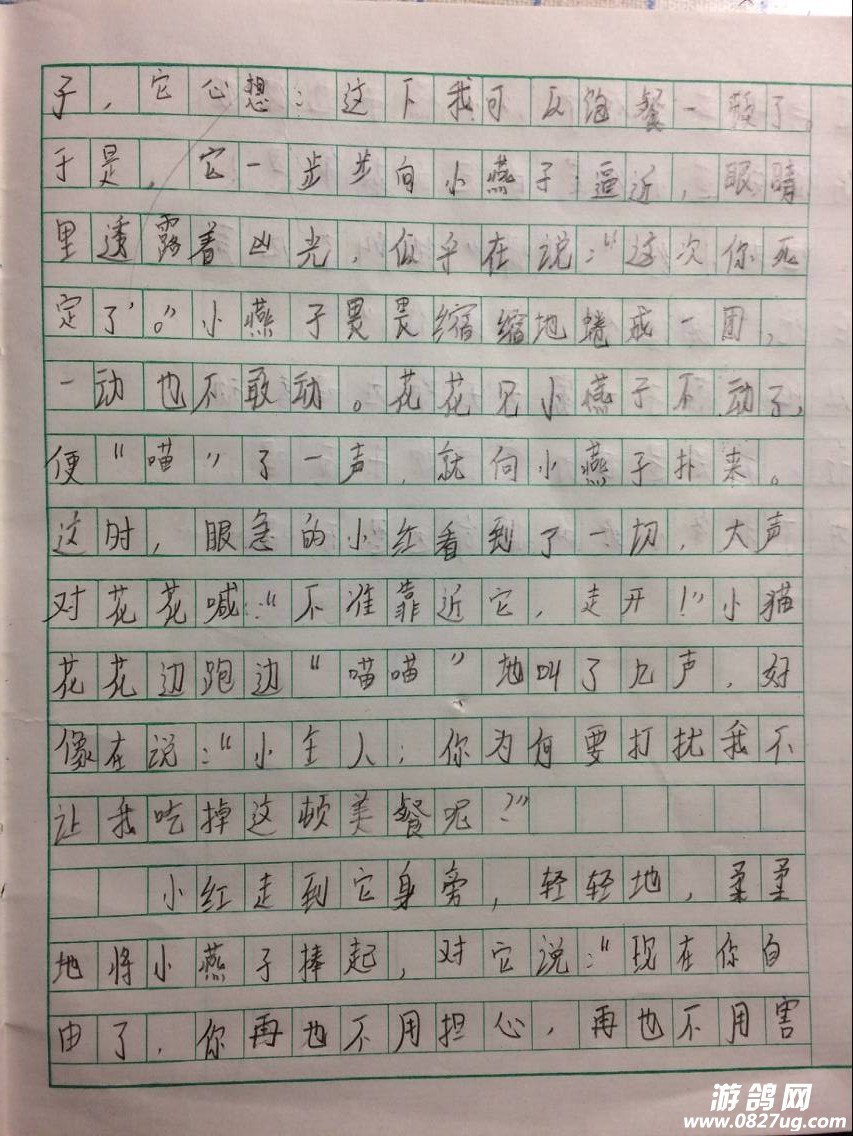 子，它心想：这下我可以饱餐一顿了。
于是，它一步步向小燕子逼近，眼睛
里透露着凶光，似乎在说：“这次你死
定了”。小燕子畏畏缩缩地蜷成一团，
一动也不敢动。花花见小燕子不动了，
便“喵”了一声，就向小燕子扑来。
这时，眼急的小红看到了一切，大声
对花花喊：“不准靠近它，走开！”小猫
花花边跑边“喵喵”地叫了几声，好
像在说：“小主人；你为何要打扰我不
让我吃掉这顿美餐呢？”
小红走到它身旁，轻轻地，柔柔
地将小燕子捧起，对它说：“现在你自
由了，你再也不用担心，再也不用害
游鸽网
www.0827ug.com